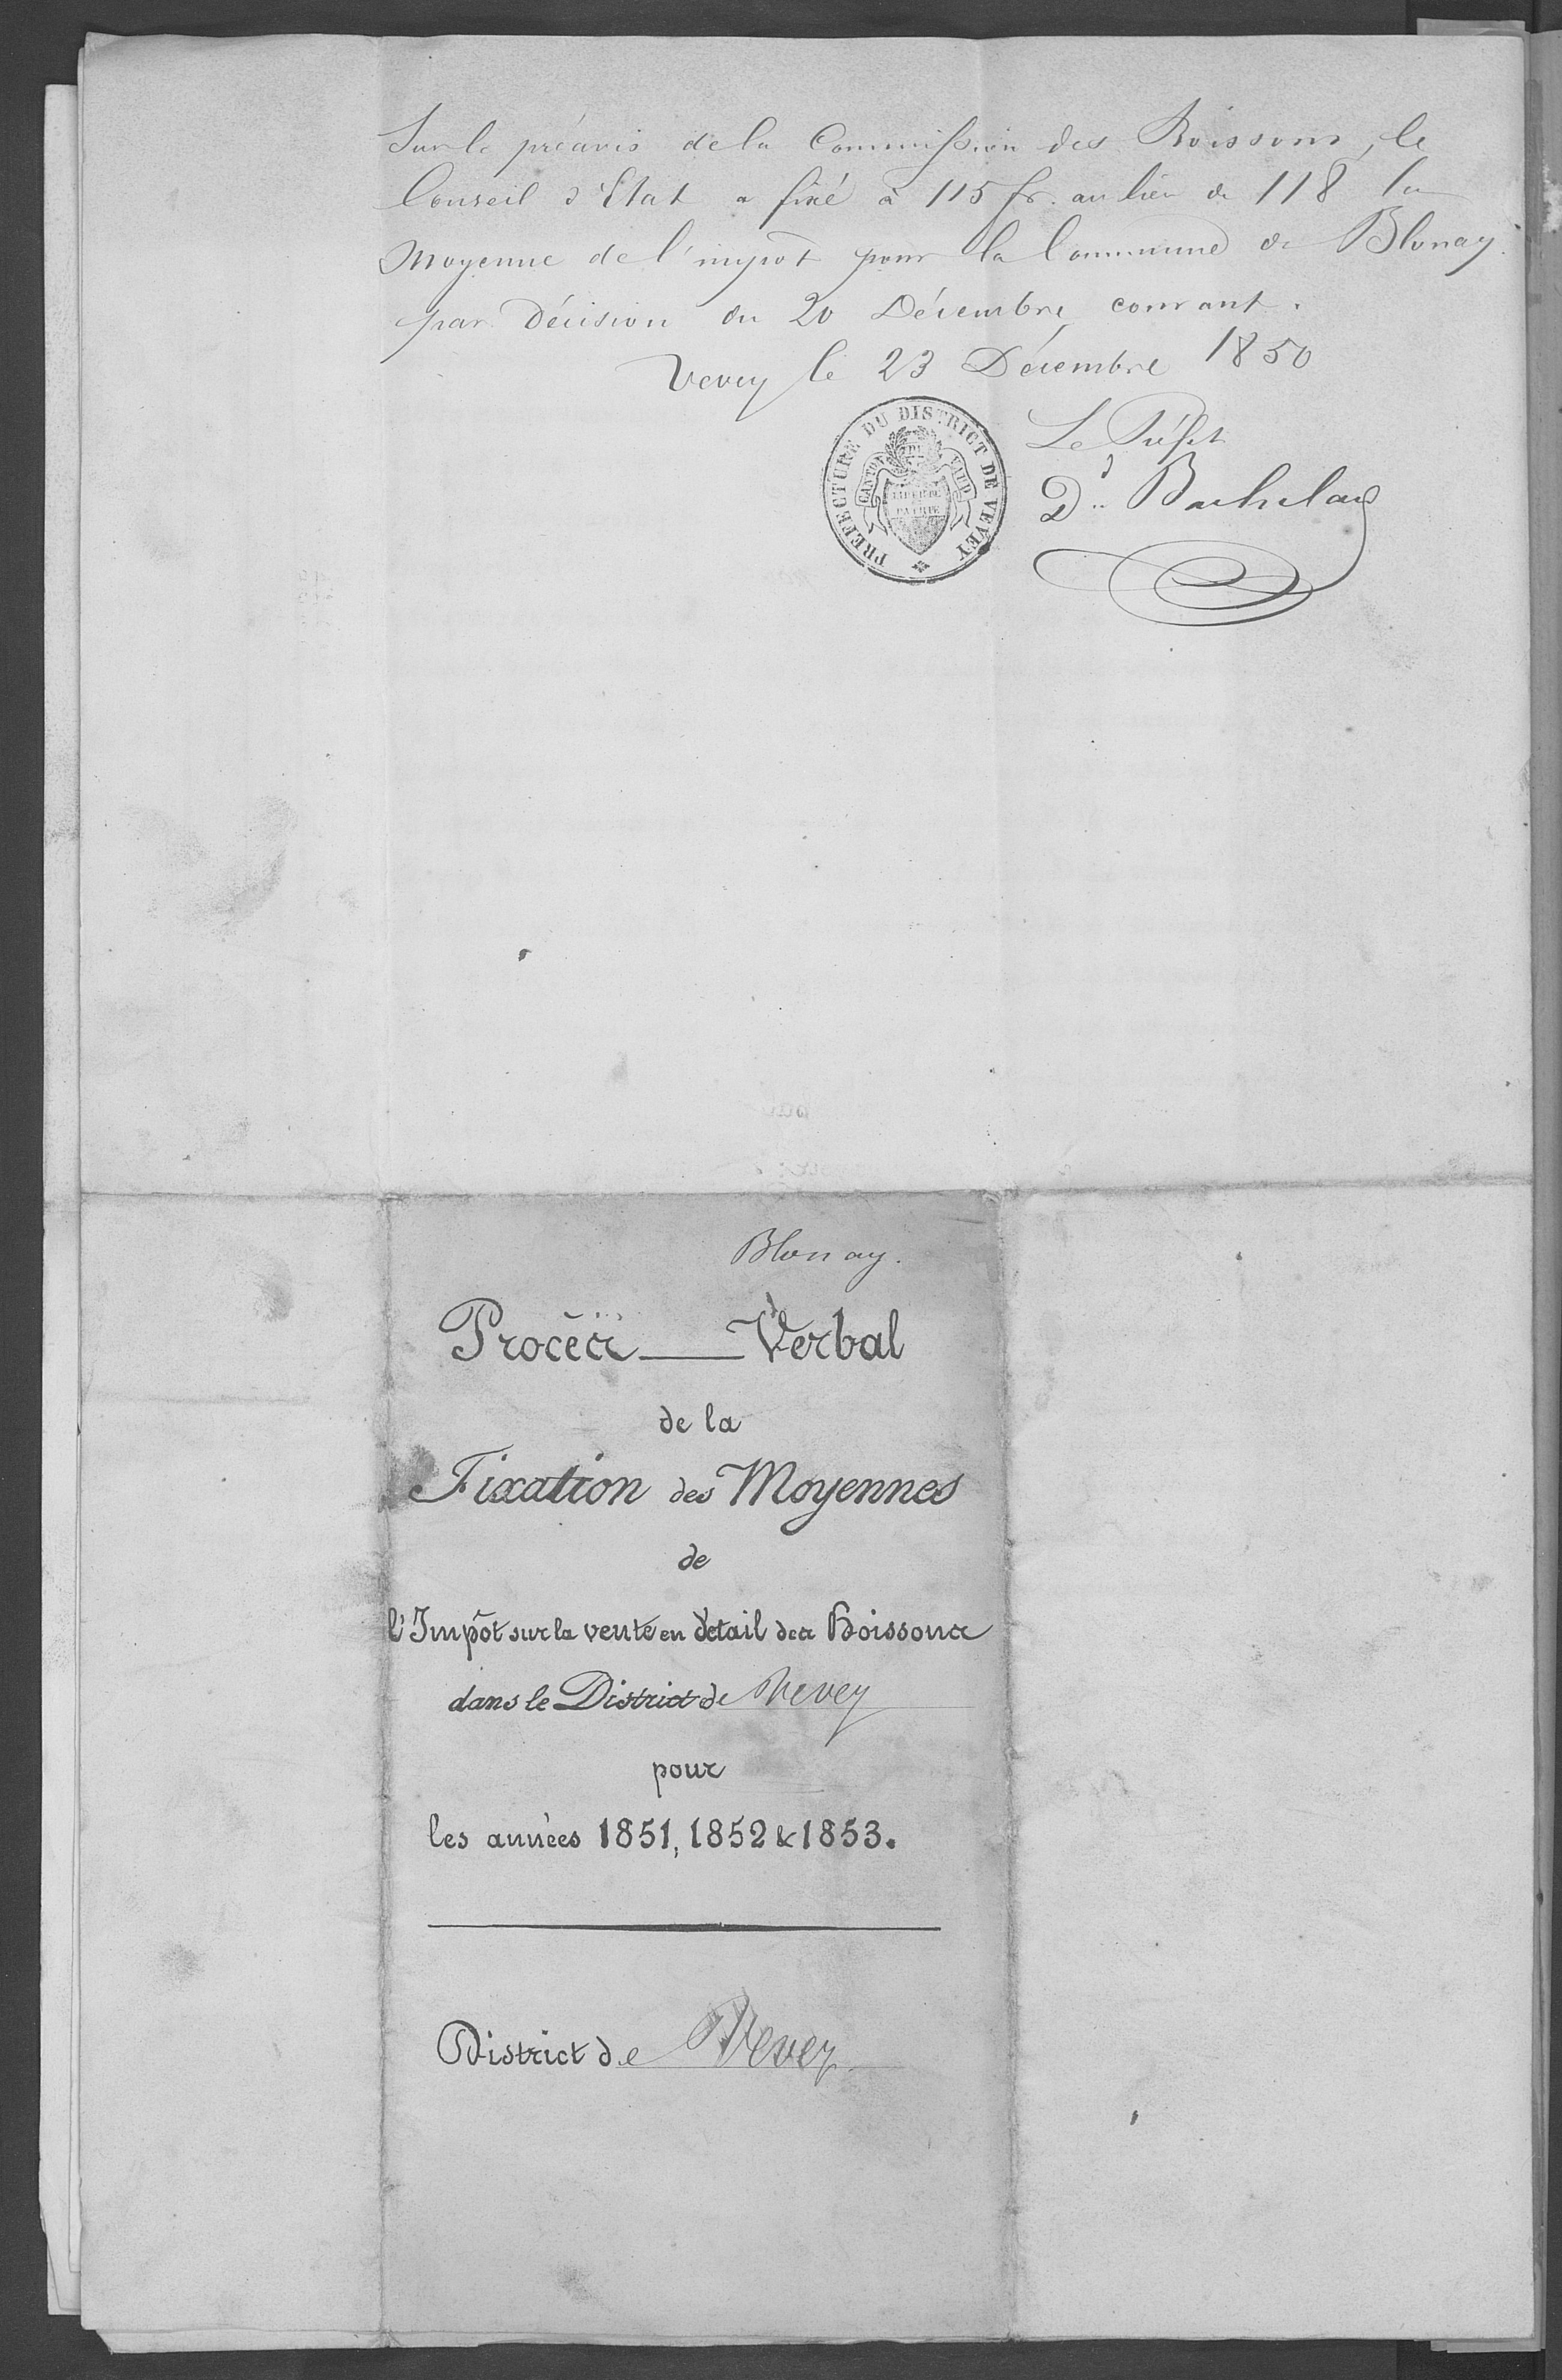 Sur le préavis de la Commission des Boissons, le
Conseil d'Etat a fixé à 115 fr. au lieu de 118 la
Moyenne de l'impôt pour la Commune de Blonay.
par décision du 20 Décembre courant.
Vevey le 23 Décembre 1850
PREFECTURE DU DISTRICT DE VEVEY
CANTON DE VAUD
LIBERTÉ
ET
PATRIE
Le Préfet
Dd Bachelard
Blonay.
Procès-Verbal
de la
Fixation des Moyennes
de
l'Impôt sur la vente en détail des Boissons
dans le District de Vevey
pour
les années 1851, 1852 & 1853.
District de Vevey